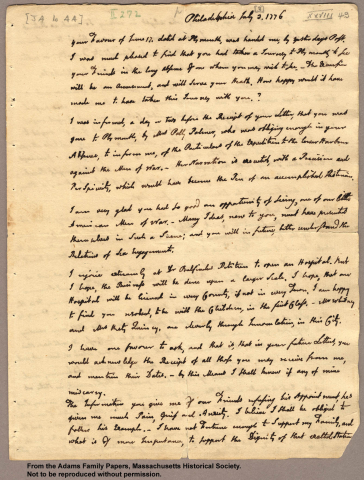 [J4 L44]
II 272
XXVIII 43
Philadelphia July 3, 1776
your Favour of June 17. dated at Plymouth, was handed me, by yesterdays Post.
I was much pleased to find that you had taken a Journey to Plymouth, to see
your Friends in the long Absence of one whom you may wish to see. The Excursion
will be an Amusement, and will serve your Health. How happy would it have
made me to have taken this Journey with you?
I was informed, a day or two before the Receipt of your Letter, that you was
gone to Plymouth, by Mrs. Polly Palmer, who was obliging enough in your
Absence, to inform me, of the Particulars of the Expedition to the lower Harbour
against the Men of War. Her Narration is executed, with a Precision and
Perspicuity, which would have become the Pen of an accomplished Historian.
I am very glad you had so good an opportunity of seeing one of our little
American Men of War. Many Ideas, new to you, must have presented
themselves in such a Scene; and you will in future, better understand the
Relations of Sea Engagements.
I rejoice extreamly at Dr. Bulfinches Petition to open an Hospital. But
I hope, the Business will be done upon a larger Scale. I hope, that one
Hospital will be licensed in every County, if not in every Town. I am happy
to find you resolved, to be with the Children, in the first Class. Mr. Whitney
and Mrs. Katy Quincy, are cleverly through Innoculation, in this City.
I have one favour to ask, and that is, that in your future Letters, you
would acknowledge the Receipt of all those you may receive from me,
and mention their Dates. By this Means I shall know if any of mine
miscarry.
The Information you give me of our Friends refusing his Appointment, has
given me much Pain, Grief and Anxiety. I believe I shall be obliged to
follow his Example. I have not Fortune enough to support my Family, and
what is of more Importance, to support the Dignity of that exalted Station.
From the Adams Family Papers, Massachusetts Historical Society.
Not to be reproduced without permission.